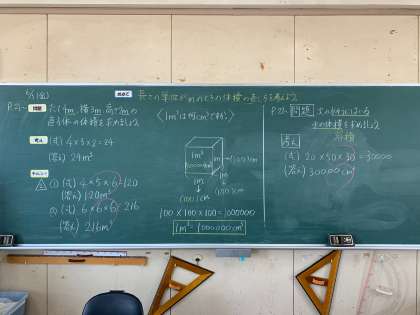 5/1(金)
めあて 長さの単位がmのときの体積の表し方を考えよう
P.21~ 問題 たて4m、横3m、高さ2mの
直方体の体積を求めましょう
考え (式) 4×3×2=24
(答え) 24m³
① (式) 4×5×6=120
(答え) 120m³
② (式) 6×6×6=216
(答え) 216m³
〈1m³は何cm³でしょう〉
1m³
1000000cm³
1m
(100cm)
1m
(100cm)
1m
(100cm)
100×100×100=1000000
1m³=1000000cm³
P.23~ 問題
水の体積を求めましょう
容積
考え
(式) 20×50×30=30000
(答え) 30000cm³